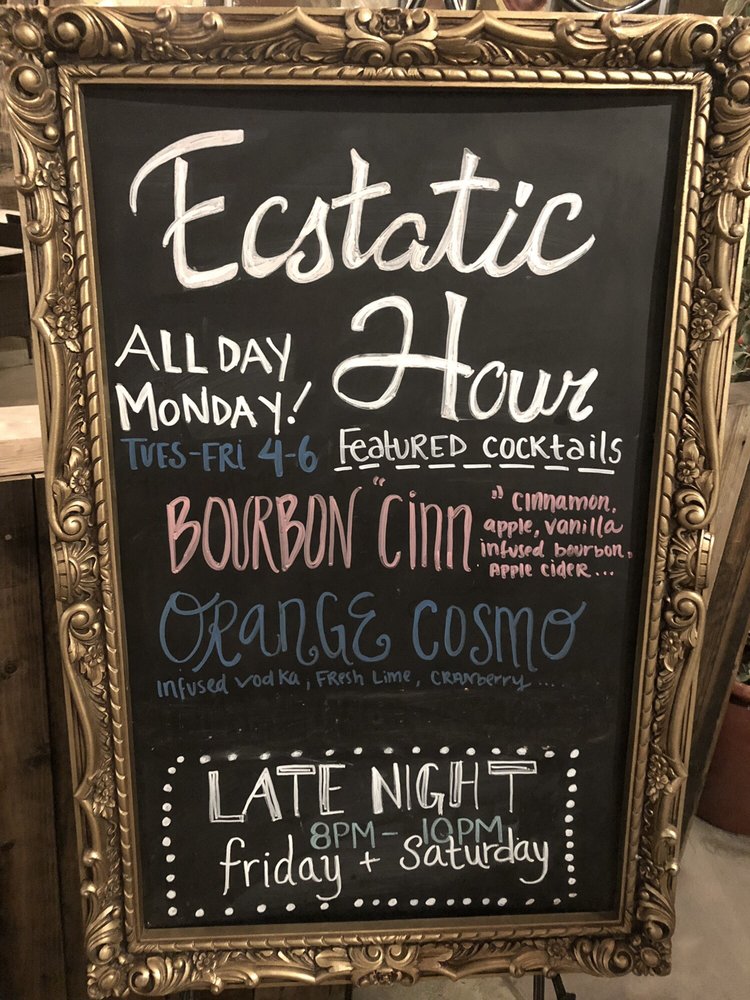 Ecstatic
Hour
ALL DAY
MONDAY!
TUES-FRI 4-6
FEATURED COCKTAILS
BOURBON "Cinn"
CINNAMON,
apple, vanilla
infused bourbon,
APPLE CIDER...
ORANGE COSMO
infused vodka, FRESH LIME, CRANBERRY...
LATE NIGHT
8PM - 10PM
friday + Saturday